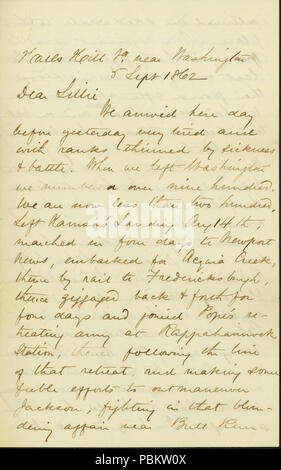 Halls Hill Va. near Washington
5 Sept 1862
Dear Lillie
We arrived here day
before yesterday very tired and
with ranks thinned by sickness
& battle. When we left Washington
we numbered over nine hundred.
We are now less than two hundred,
Left Harrison's Landing Aug 14th,
marched in four days to Newport
News, embarked for Acquia Creek,
thence by rail to Fredericksburgh,
thence zigzaged back & forth for
four days and joined Pope's re-
treating army at Rappahannock
Station, thence following the line
of that retreat, and making some
feeble efforts to outmaneuver
Jackson, fighting in that blun-
dering affair near Bull Run
alamy
Image ID: PBKW0X
www.alamy.com